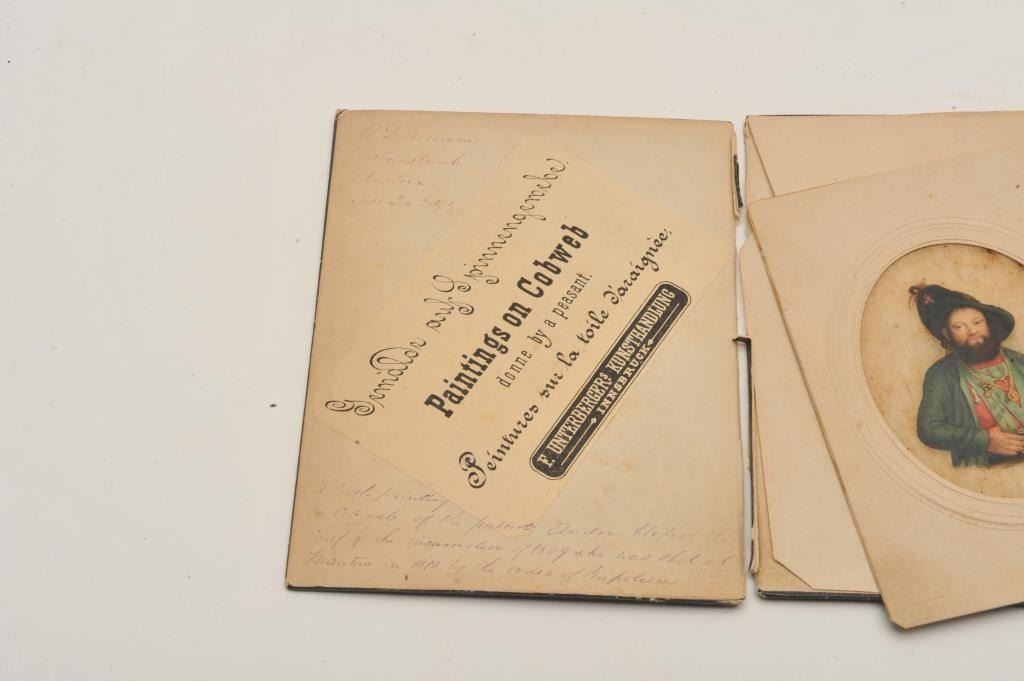 Innsbruck
Austria
Gemälde auf Spinnengewebe.
Paintings on Cobweb
donne by a peasant.
Peintures sur la toile d'araignèe.
F. UNTERBERGERS KUNSTHANDLUNG
INNSBRUCK
painting
of the patriot André Hofer the
chief of the insurrection of 1809 who was shot at
Mantua in 1810 by the order of Napoleon